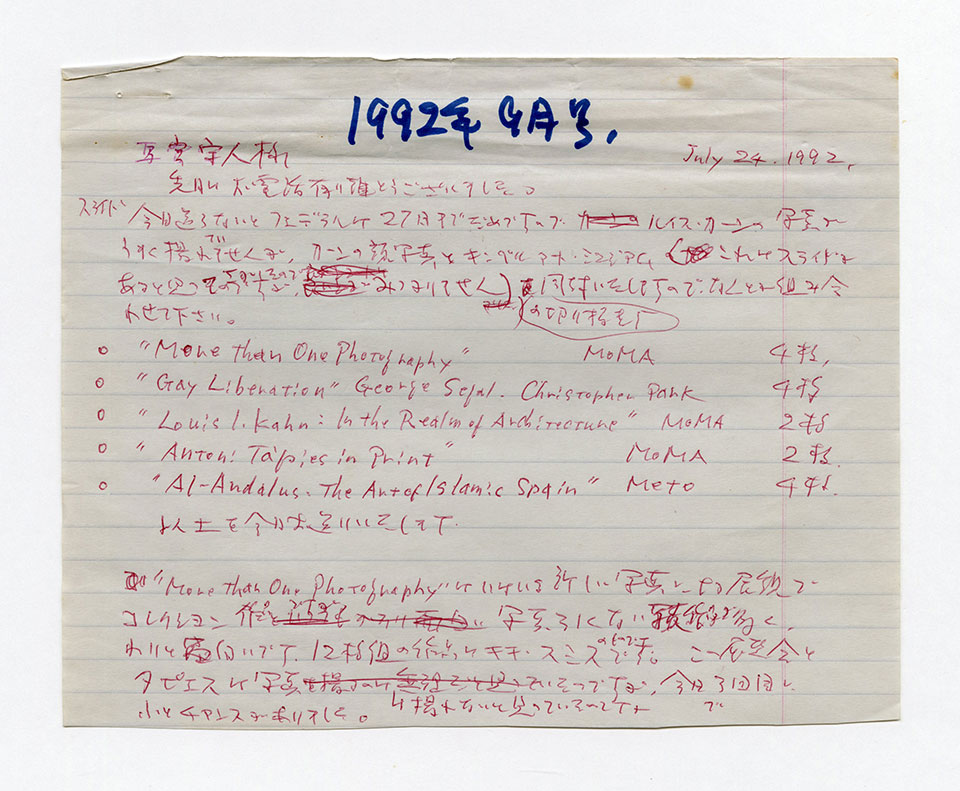 1992年 9月号,
様 July 24. 1992,
先日は お電話有り難とうございました。
スライド 今日送らないとフェデラルは27日までだめですので ルイス・カーンの写真が
うまく撮れてませんが、カーンの顔写真とキンブル アート・ミュジアム これはスライドが
あると思って みつかりません 同封いたしますので、なんとか組み合
の切り抜き
わせて下さい。
○ "More than One Photography" MoMA 4枚,
○ "Gay Liberation" George Segal. Christopher Park 4枚
○ "Louis I. Kahn: In the Realm of Architecture" MoMA 2枚
○ "Antoni Tàpies in Print" MoMA 2枚.
○ "Al-Andalus. The Art of Islamic Spain" Meto 4枚.
以上を今日お送りいたします.
"More than One Photography" はいわいる新しい写真 展観で
コレクション 写真 にない 多く、
わりと面白いです. 12枚組の キキ・スミスのものです。この展覧会と
タピエスは写真 今日3回目
で
やっとチャンスがありました。
は撮れないと思っているのですが